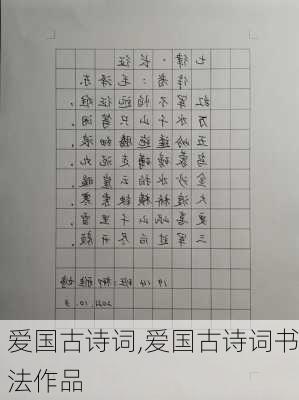 七律·长征
作者:毛泽东
红军不怕远征难,
万水千山只等闲。
五岭逶迤腾细浪,
乌蒙磅礴走泥丸。
金沙水拍云崖暖,
大渡桥横铁索寒。
更喜岷山千里雪,
三军过后尽开颜。
班:
2021.10.8
爱国古诗词,爱国古诗词书
法作品